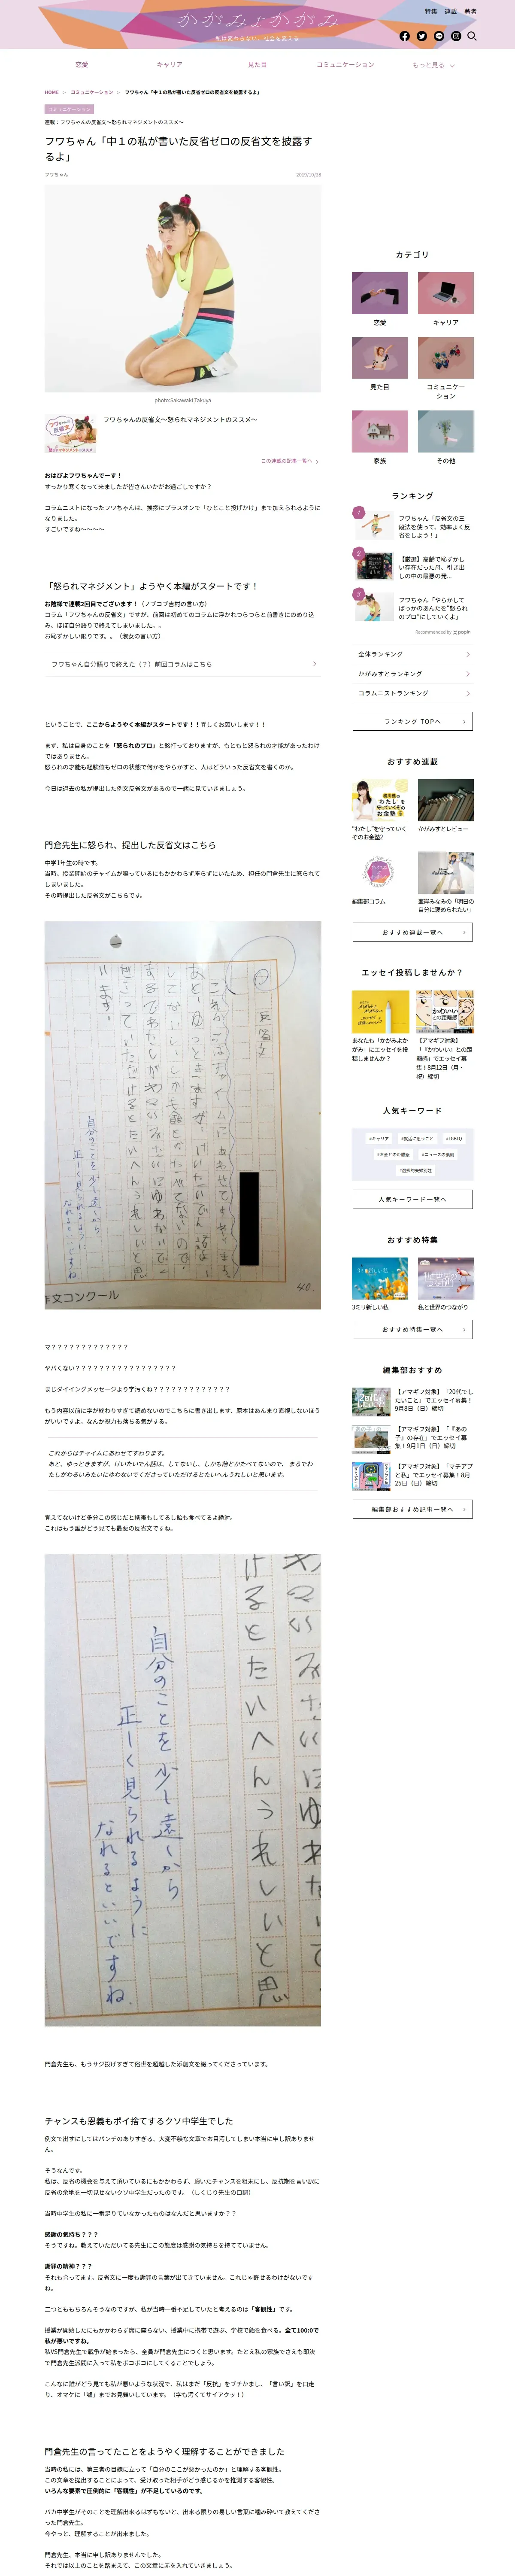 特集 連載 著者
かがみよかがみ
私は変わらない、社会を変える
恋愛 キャリア 見た目 コミュニケーション もっと見る
HOME > コミュニケーション > フワちゃん「中１の私が書いた反省ゼロの反省文を披露するよ」
コミュニケーション
連載：フワちゃんの反省文〜怒られマネジメントのススメ〜
フワちゃん「中１の私が書いた反省ゼロの反省文を披露す
るよ」
フワちゃん
photo:Sakawaki Takuya
フワちゃんの反省文〜怒られマネジメントのススメ〜
この連載の記事一覧へ
おはぴよフワちゃんでーす！
すっかり寒くなって来ましたが皆さんいかがお過ごしですか？
コラムニストになったフワちゃんは、挨拶にプラスオンで「ひとこと投げかけ」まで加えられるように
なりました。
すごいですね〜〜〜〜
「怒られマネジメント」ようやく本編がスタートです！
お陰様で連載2回目でございます！（ノブコブ吉村の言い方）
コラム「フワちゃんの反省文」ですが、前回は初めてのコラムに浮かれつらつらと前書きにのめり込
み、ほぼ自分語りで終えてしまいました。。
お恥ずかしい限りです。。（淑女の言い方）
フワちゃん自分語りで終えた（？）前回コラムはこちら
ということで、ここからようやく本編がスタートです！！宜しくお願いします！！
まず、私は自身のことを「怒られのプロ」と銘打っておりますが、もともと怒られの才能があったわけ
ではありません。
怒られの才能も経験値もゼロの状態で何かをやらかすと、人はどういった反省文を書くのか。
今日は過去の私が提出した例文反省文があるので一緒に見ていきましょう。
門倉先生に怒られ、提出した反省文はこちら
中学1年生の時です。
当時、授業開始のチャイムが鳴っているにもかかわらず座らずにいたため、担任の門倉先生に怒られて
しまいました。
その時提出した反省文がこちらです。
反省文
自分のことを少し遠くから
正しく見られるように
なれるといいですね
作文コンクール
マ？？？？？？？？？？？？？
ヤバくない？？？？？？？？？？？？？？？？？
まじダイイングメッセージより字汚くね？？？？？？？？？？？？？
もう内容以前に字が終わりすぎて読めないのでこちらに書き出します、原本はあんまり直視しないほう
がいいですよ。なんか視力も落ちる気がする。
これからはチャイムにあわせてすわります。
あと、ゆっときますが、けいたいでん話は、してないし、しかも飴とかたべてないので、 まるでわ
たしがわるいみたいにゆわないでくださっていただけるとたいへんうれしいと思います。
覚えてないけど多分この感じだと携帯もしてるし飴も食べてるよ絶対。
これはもう誰がどう見ても最悪の反省文ですね。
けるとたいへんうれしいと思
自分のことを少し遠くから
正しく見られるように
なれるといいですね。
門倉先生も、もうサジ投げすぎて俗世を超越した添削文を綴ってくださっています。
チャンスも恩義もポイ捨てするクソ中学生でした
例文で出すにしてはパンチのありすぎる、大変不様な文章でお目汚してしまい本当に申し訳ありませ
ん。
そうなんです。
私は、反省の機会を与えて頂いているにもかかわらず、頂いたチャンスを粗末にし、反抗期を言い訳に
反省の余地を一切見せないクソ中学生だったのです。（しくじり先生の口調）
当時中学生の私に一番足りていなかったものはなんだと思いますか？？
感謝の気持ち？？？
そうですね。教えていただいてる先生にこの態度は感謝の気持ちを持てていません。
謝罪の精神？？？
それも合ってます。反省文に一度も謝罪の言葉が出てきていません。これじゃ許せるわけがないです
ね。
二つとももちろんそうなのですが、私が当時一番不足していたと考えるのは「客観性」です。
授業が開始したにもかかわらず席に座らない、授業中に携帯で遊ぶ、学校で飴を食べる。全て100:0で
私が悪いですね。
私VS門倉先生で戦争が始まったら、全員が門倉先生につくと思います。たとえ私の家族でさえも即決
で門倉先生派閥に入って私をボコボコにしてくることでしょう。
こんなに誰がどう見ても私が悪いような状況で、私はまだ「反抗」をブチかまし、「言い訳」を口走
り、オマケに「嘘」までお見舞いしています。（字も汚くてサイアクッ！）
門倉先生の言ってたことをようやく理解することができました
当時の私には、第三者の目線に立って「自分のここが悪かったのか」と理解する客観性。
この文章を提出することによって、受け取った相手がどう感じるかを推測する客観性。
いろんな要素で圧倒的に「客観性」が不足しているのです。
バカ中学生がそのことを理解出来るはずもないと、出来る限りの易しい言葉に噛み砕いて教えてくださ
った門倉先生。
今やっと、理解することが出来ました。
門倉先生、本当に申し訳ありませんでした。
それでは以上のことを踏まえて、この文章に赤を入れていきましょう。
カテゴリ
恋愛 キャリア
見た目 コミュニケー
ション
家族 その他
ランキング
1
フワちゃん「反省文の三
段活を使って、効率よく反
省をしよう！」
2
【厳選】高齢で恥ずかし
い存在だった母、引き出
しの中の最悪の発...
3
フワちゃん「やらかして
ばっかのあんたを“怒られ
のプロ”にしていくよ」
Recommended by popIn
全体ランキング
かがみすとランキング
コラムニストランキング
ランキング TOPへ
おすすめ連載
“わたし”を守っていく
そのお金塾2
かがみすとレビュー
編集部コラム
峯岸みなみの「明日の
自分に褒められたい」
おすすめ連載一覧へ
エッセイ投稿しませんか？
かわいい
との距離感
あなたも「かがみよか
がみ」にエッセイを投
稿しませんか？
【アマギフ対象】
「『かわいい』との距
離感」でエッセイ募
集！8月12日（月・
祝）締切
人気キーワード
#キャリア #就活に思うこと #LGBTQ
#お金との距離感 #ニュースの裏側
#選択的夫婦別姓
人気キーワード一覧へ
おすすめ特集
3ミリ新しい私
私と世界のつながり
おすすめ特集一覧へ
編集部おすすめ
【アマギフ対象】「20代でし
たいこと」でエッセイ募集！
9月8日（日）締切
【アマギフ対象】「『あの
子』の存在」でエッセイ募
集！9月1日（日）締切
【アマギフ対象】「マチアプ
と私」でエッセイ募集！8月
25日（日）締切
編集部おすすめ記事一覧へ